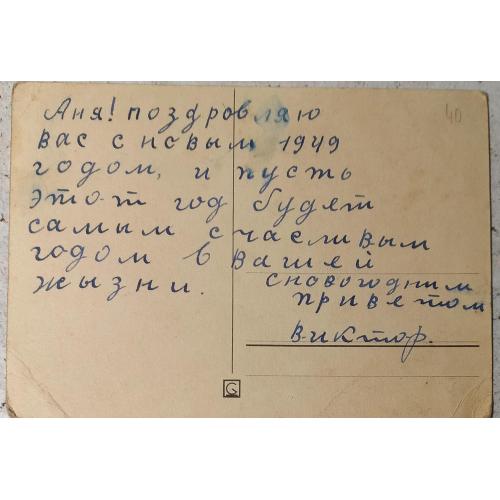 Аня! поздровляю
вас с новым 1949
годом, и пусть
этот год будет
самым счасливым
годом в вашей
жызни.
с новогодним
приветом
Виктор.
40
G